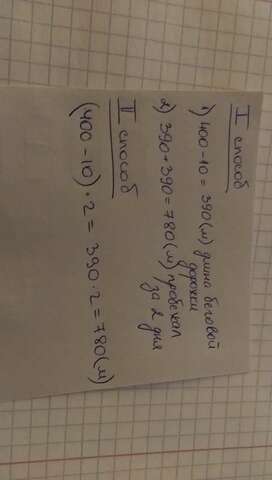 I способ
1) 400-10 = 390(м) длина беговой
дорожки
2) 390+390=780(м) пробежал
за 2 дня
II способ
(400-10)·2= 390·2=780(м)